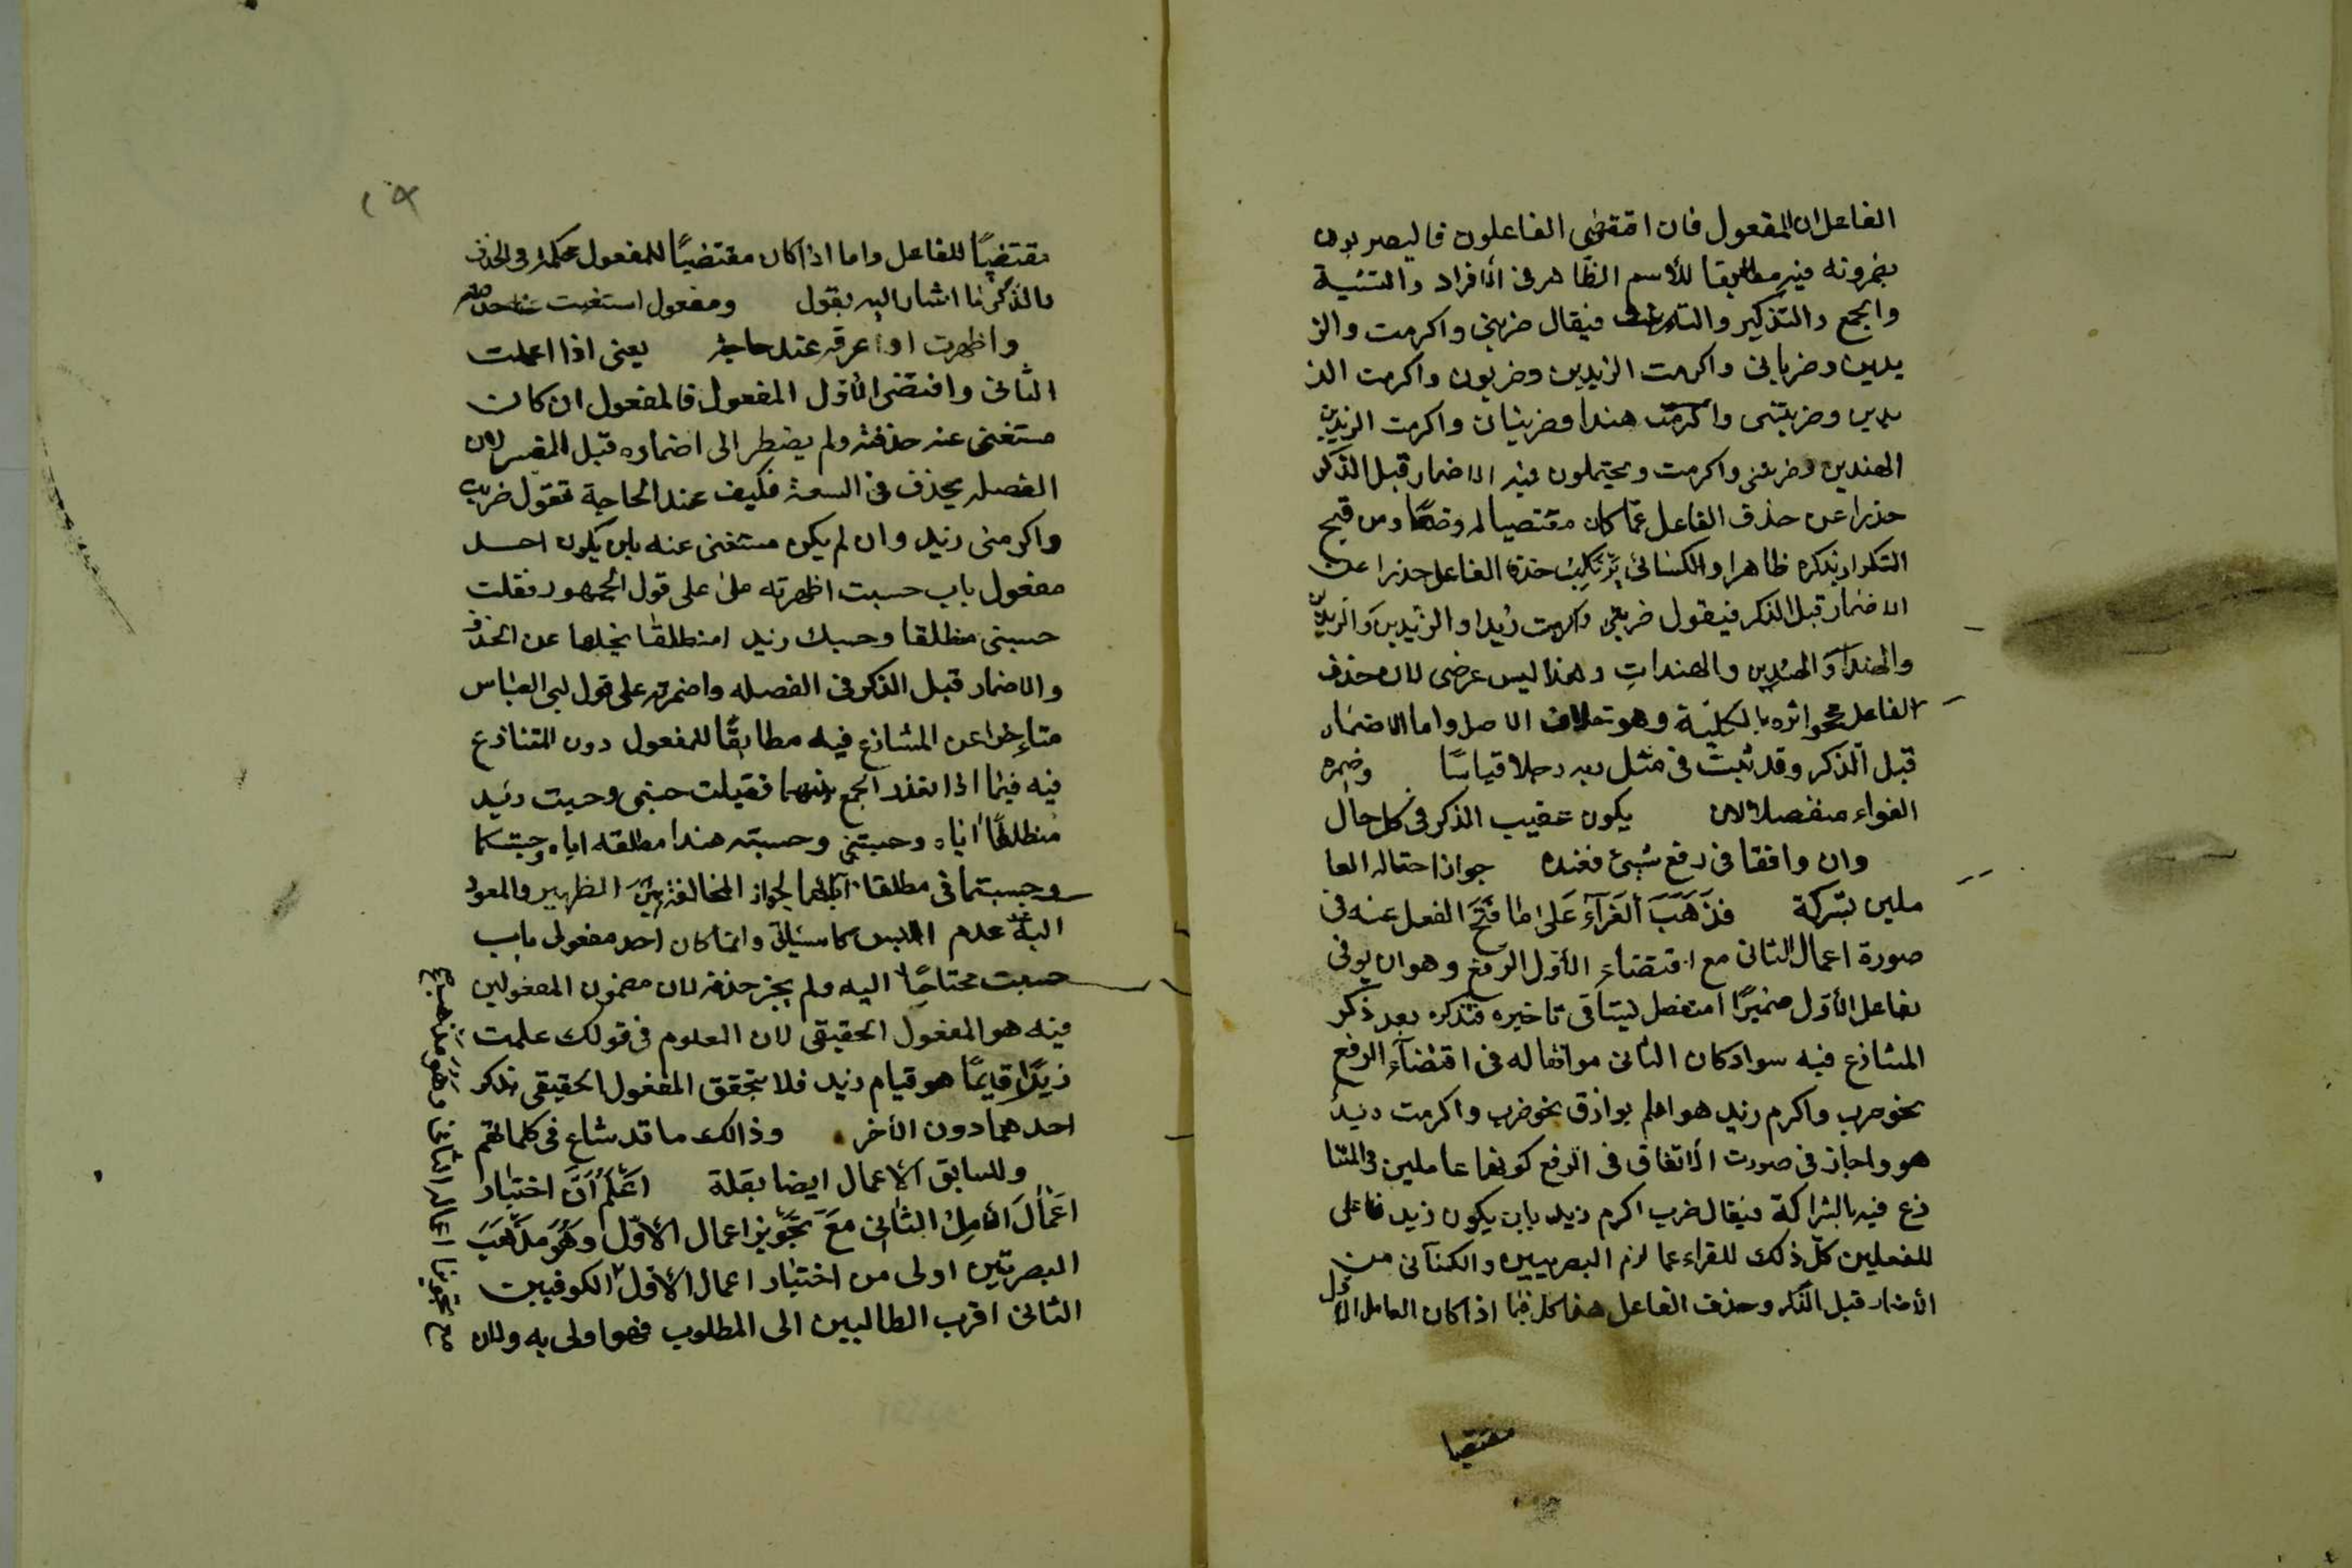 الفاعل ان المفعول فان اقتضى الفاعلون فالبصريون
يضمرونه فيه مطابقا للأسم الظاهر فى الأفراد والتثنية
والجمع والتذكير والتانيث فيقال ضربنى واكرمت والز
يدين وضربانى واكرمت الزيدين وضربون واكرمت الز
يدين وضربتنى واكرمت هندا وضربتان واكرمت
الهندين وضربننى واكرمت ويحتملون فيه الاضمار قبل الذكر
حذرا عن حذف الفاعل عمّا كان مقتضيا له وضعًا ومن قبح
التكرار بذكره ظاهرا والكسائى يرتكب حذف الفاعل حذرا عن
الاضمار قبل الذكر فيقول ضربنى واكرمت زيدا والزيدين والزيدين
والهندا والهندين والهندات وهذا ليس عرضى لان حذف
الفاعل محو اثره بالكليّة وهو خلاف الاصل واما الاضمار
قبل الذكر وقد ثبت فى مثل ربه رجلا قياسًا وضمره
الفراء منفصلا لان يكون عقيب الذكر فى كل حال
وان وافقا فى رفع شيئ فعنده جواز احتماله العا
ملين بشركة فذهب ألفرآء على ما فتح الفعل عنه فى
صورة اعمال الثانى مع اقتضاء الأول الرفع وهو ان يوتى
بفاعل الأول ضميرًا منفصل ليتاقى تاخيره فتذكره بعد ذكر
المتنازع فيه سواء كان الثانى موافقا له فى اقتضآء الرفع
نحو ضرب واكرم زيد هو اولم يوافق نحو ضرب واكرمت زيدا
هو واجاز فى صورت الأتفاق فى الرفع كونهما عاملين فى المتنا
زع فيه بالشراكة فيقال ضرب اكرم زيد بان يكون زيد فاعلى
للفعلين كلّ ذلك للفراء عما لزم البصريين والكسآئى من
الأضمار قبل الذكر وحذف الفاعل هذا كله فيما اذا كان العامل الاول
مقتضيا
١٥
مقتضيًا للفاعل واما اذا كان مقتضيًا للمفعول فحكمه فى الحذف
والذكر ما اشار اليه بقول ومفعول استغنيت عنه حذفته
واظهرت او عرقه عند حاجة يعنى اذا اعملت
الثانى واقتضى الأوّل المفعول فالمفعول ان كان
مستغنى عنه حذفته ولم يضطر الى اضماره قبل المفسر لان
الفضله يحذف فى السعة فكيف عند الحاجة تقول ضربت
واكرمنى زيد وان لم يكن مستغنى عنه بان يكون احد
مفعول باب حسبت اظهرته على قول الجمهور فقلت
حسبنى منطلقا وحسبت زيد امنطلقا عن الحذف
والاضمار قبل الذكر فى الفضله واضمرته على قول ابى العباس
متاخرا عن المتنازع فيه مطابقًا للمفعول دون المتنازع
فيه فيما اذا تعذر الجمع بينهما فقيلت حسبنى وحسبت زيد
منطلقًا اياه وحسبتنى وحسبت هندا منطلقه اياه
وحسبتمانى منطلقا اياهما لجواز المخالفة بين الظهير والمعود
اليه عند عدم اللبس كما سياتى وانما كان احد مفعولى باب
حسبت محتاجًا اليه ولم يجز حذفه لان مضمون المفعولين
فيه هو المفعول الحقيقى لان المعلوم فى قولك علمت
زيدًا قايمًا هو قيام زيد فلا يتحقق المفعول الحقيقى بذكر
احدهما دون الأخر وذالك ما قد شاع فى كلماتهم
وللسابق الأعمال ايضا بقلة اعلم أنّ اختيار
اعمال العامل الثانى مع تجويز اعمال الأوّل وهو مذهب
البصريّين اولى من اختيار اعمال الأوّل الكوفيين
الثانى اقرب الطالبين الى المطلوب فهو اولى به ولان